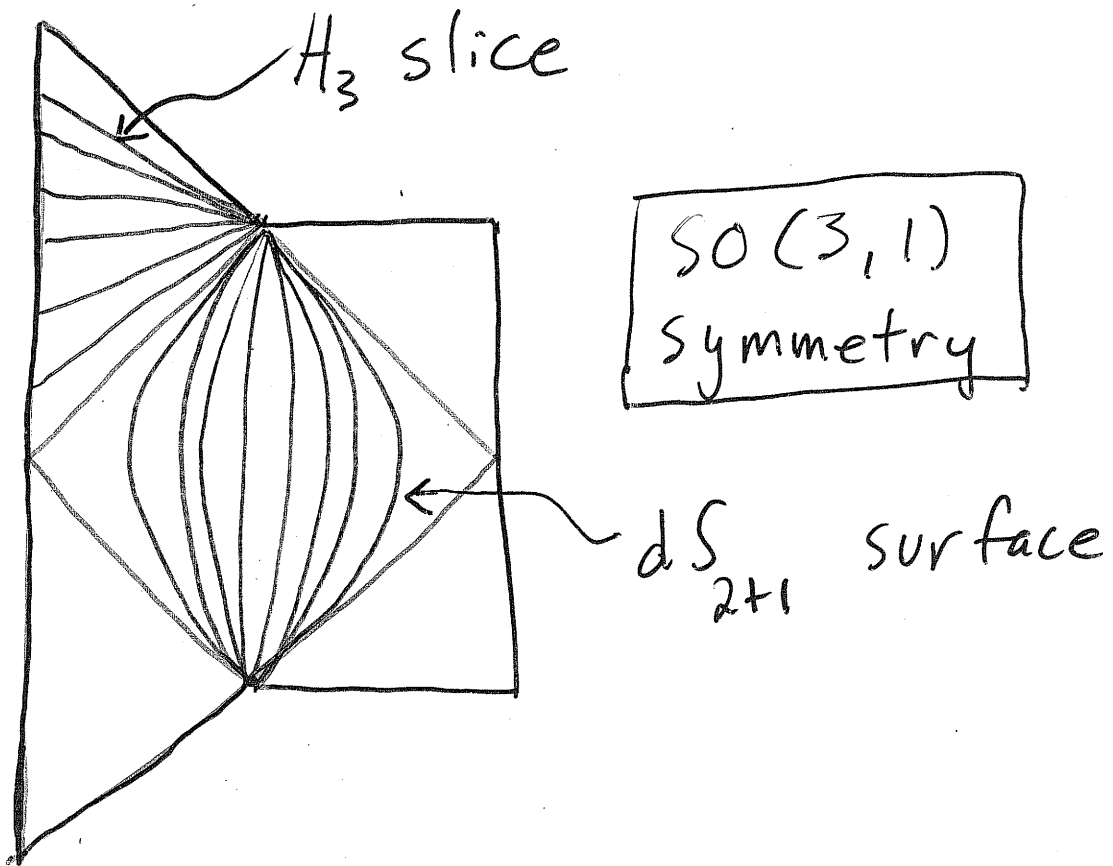 H₃ slice
SO(3,1)
symmetry
dS₂₊₁ surface